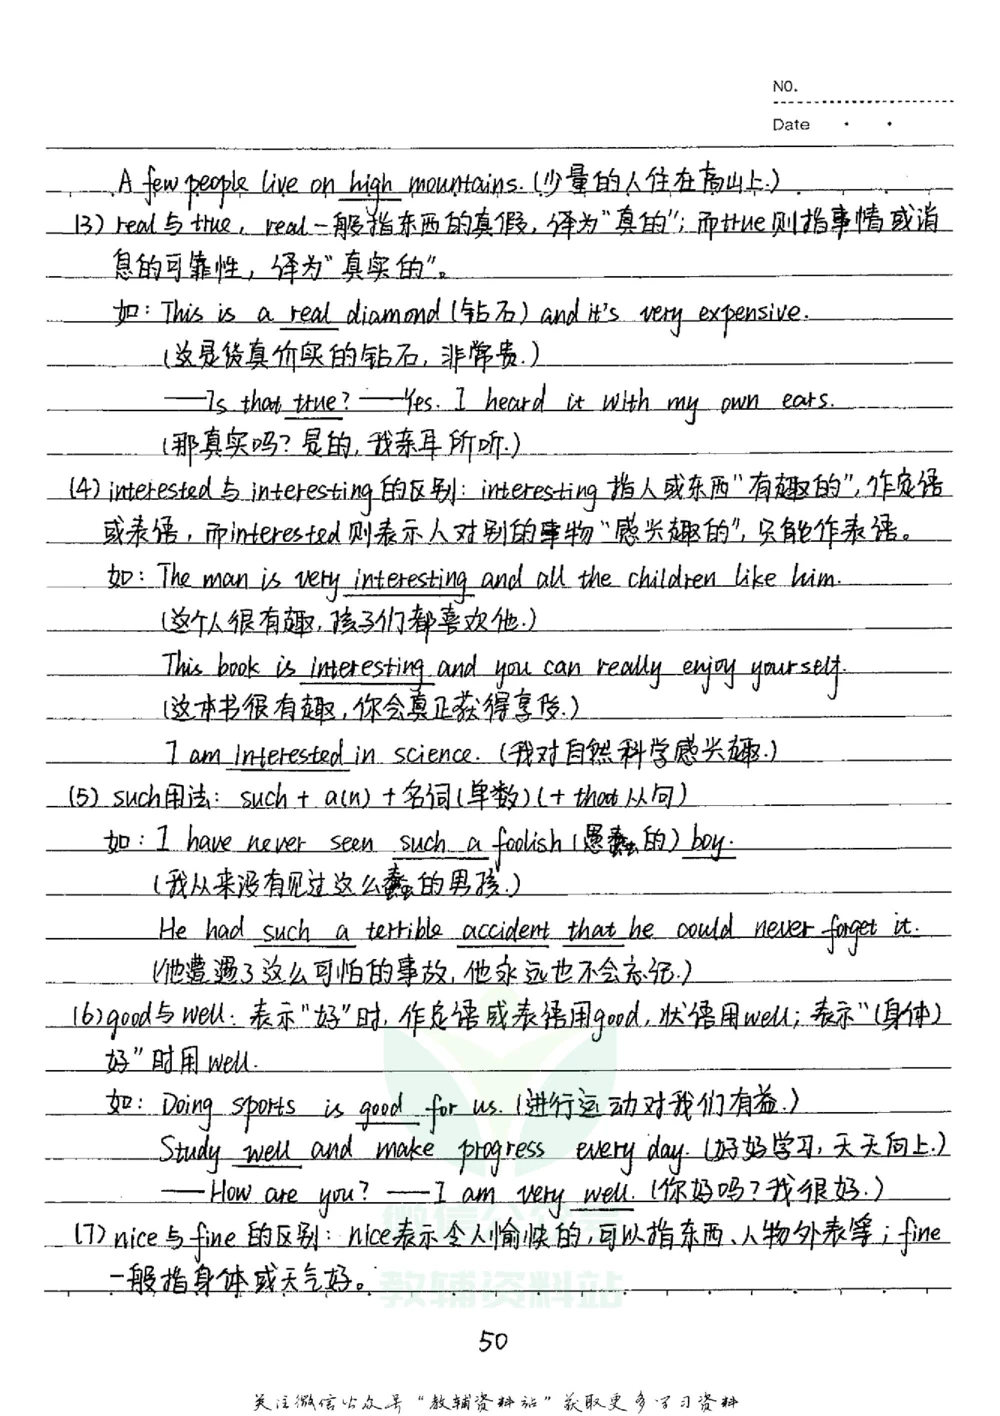 NO.
Date
A few people live on high mountains. (少量的人住在高山上.)
(3) real与true, real一般指东西的真假, 译为"真的"; 而true则指事情或消
息的可靠性, 译为"真实的"。
如: This is a real diamond (钻石) and it's very expensive.
(这是货真价实的钻石, 非常贵.)
——Is that true? ——Yes. I heard it with my own ears.
(那真实吗? 是的, 我亲耳所听.)
(4) interested与interesting的区别: interesting指人或东西"有趣的", 作定语
或表语, 而interested则表示人对别的事物"感兴趣的", 只能作表语。
如: The man is very interesting and all the children like him.
(这个人很有趣, 孩子们都喜欢他.)
This book is interesting and you can really enjoy yourself.
(这本书很有趣, 你会真正获得享受.)
I am interested in science. (我对自然科学感兴趣.)
(5) such用法: such + a(n) + 名词(单数) (+ that从句)
如: I have never seen such a foolish (愚蠢的) boy.
(我从来没有见过这么蠢的男孩.)
He had such a terrible accident that he could never forget it.
(他遭遇了这么可怕的事故, 他永远也不会忘记.)
(6) good与well: 表示"好"时, 作定语或表语用good, 状语用well; 表示"(身体)
好"时用well.
如: Doing sports is good for us. (进行运动对我们有益.)
Study well and make progress every day. (好好学习, 天天向上.)
——How are you? ——I am very well. (你好吗? 我很好.)
(7) nice与fine的区别: nice表示令人愉快的, 可以指东西、人物外表等; fine
一般指身体或天气好。
微信公众号
教辅资料站
50
关注微信公众号"教辅资料站"获取更多学习资料